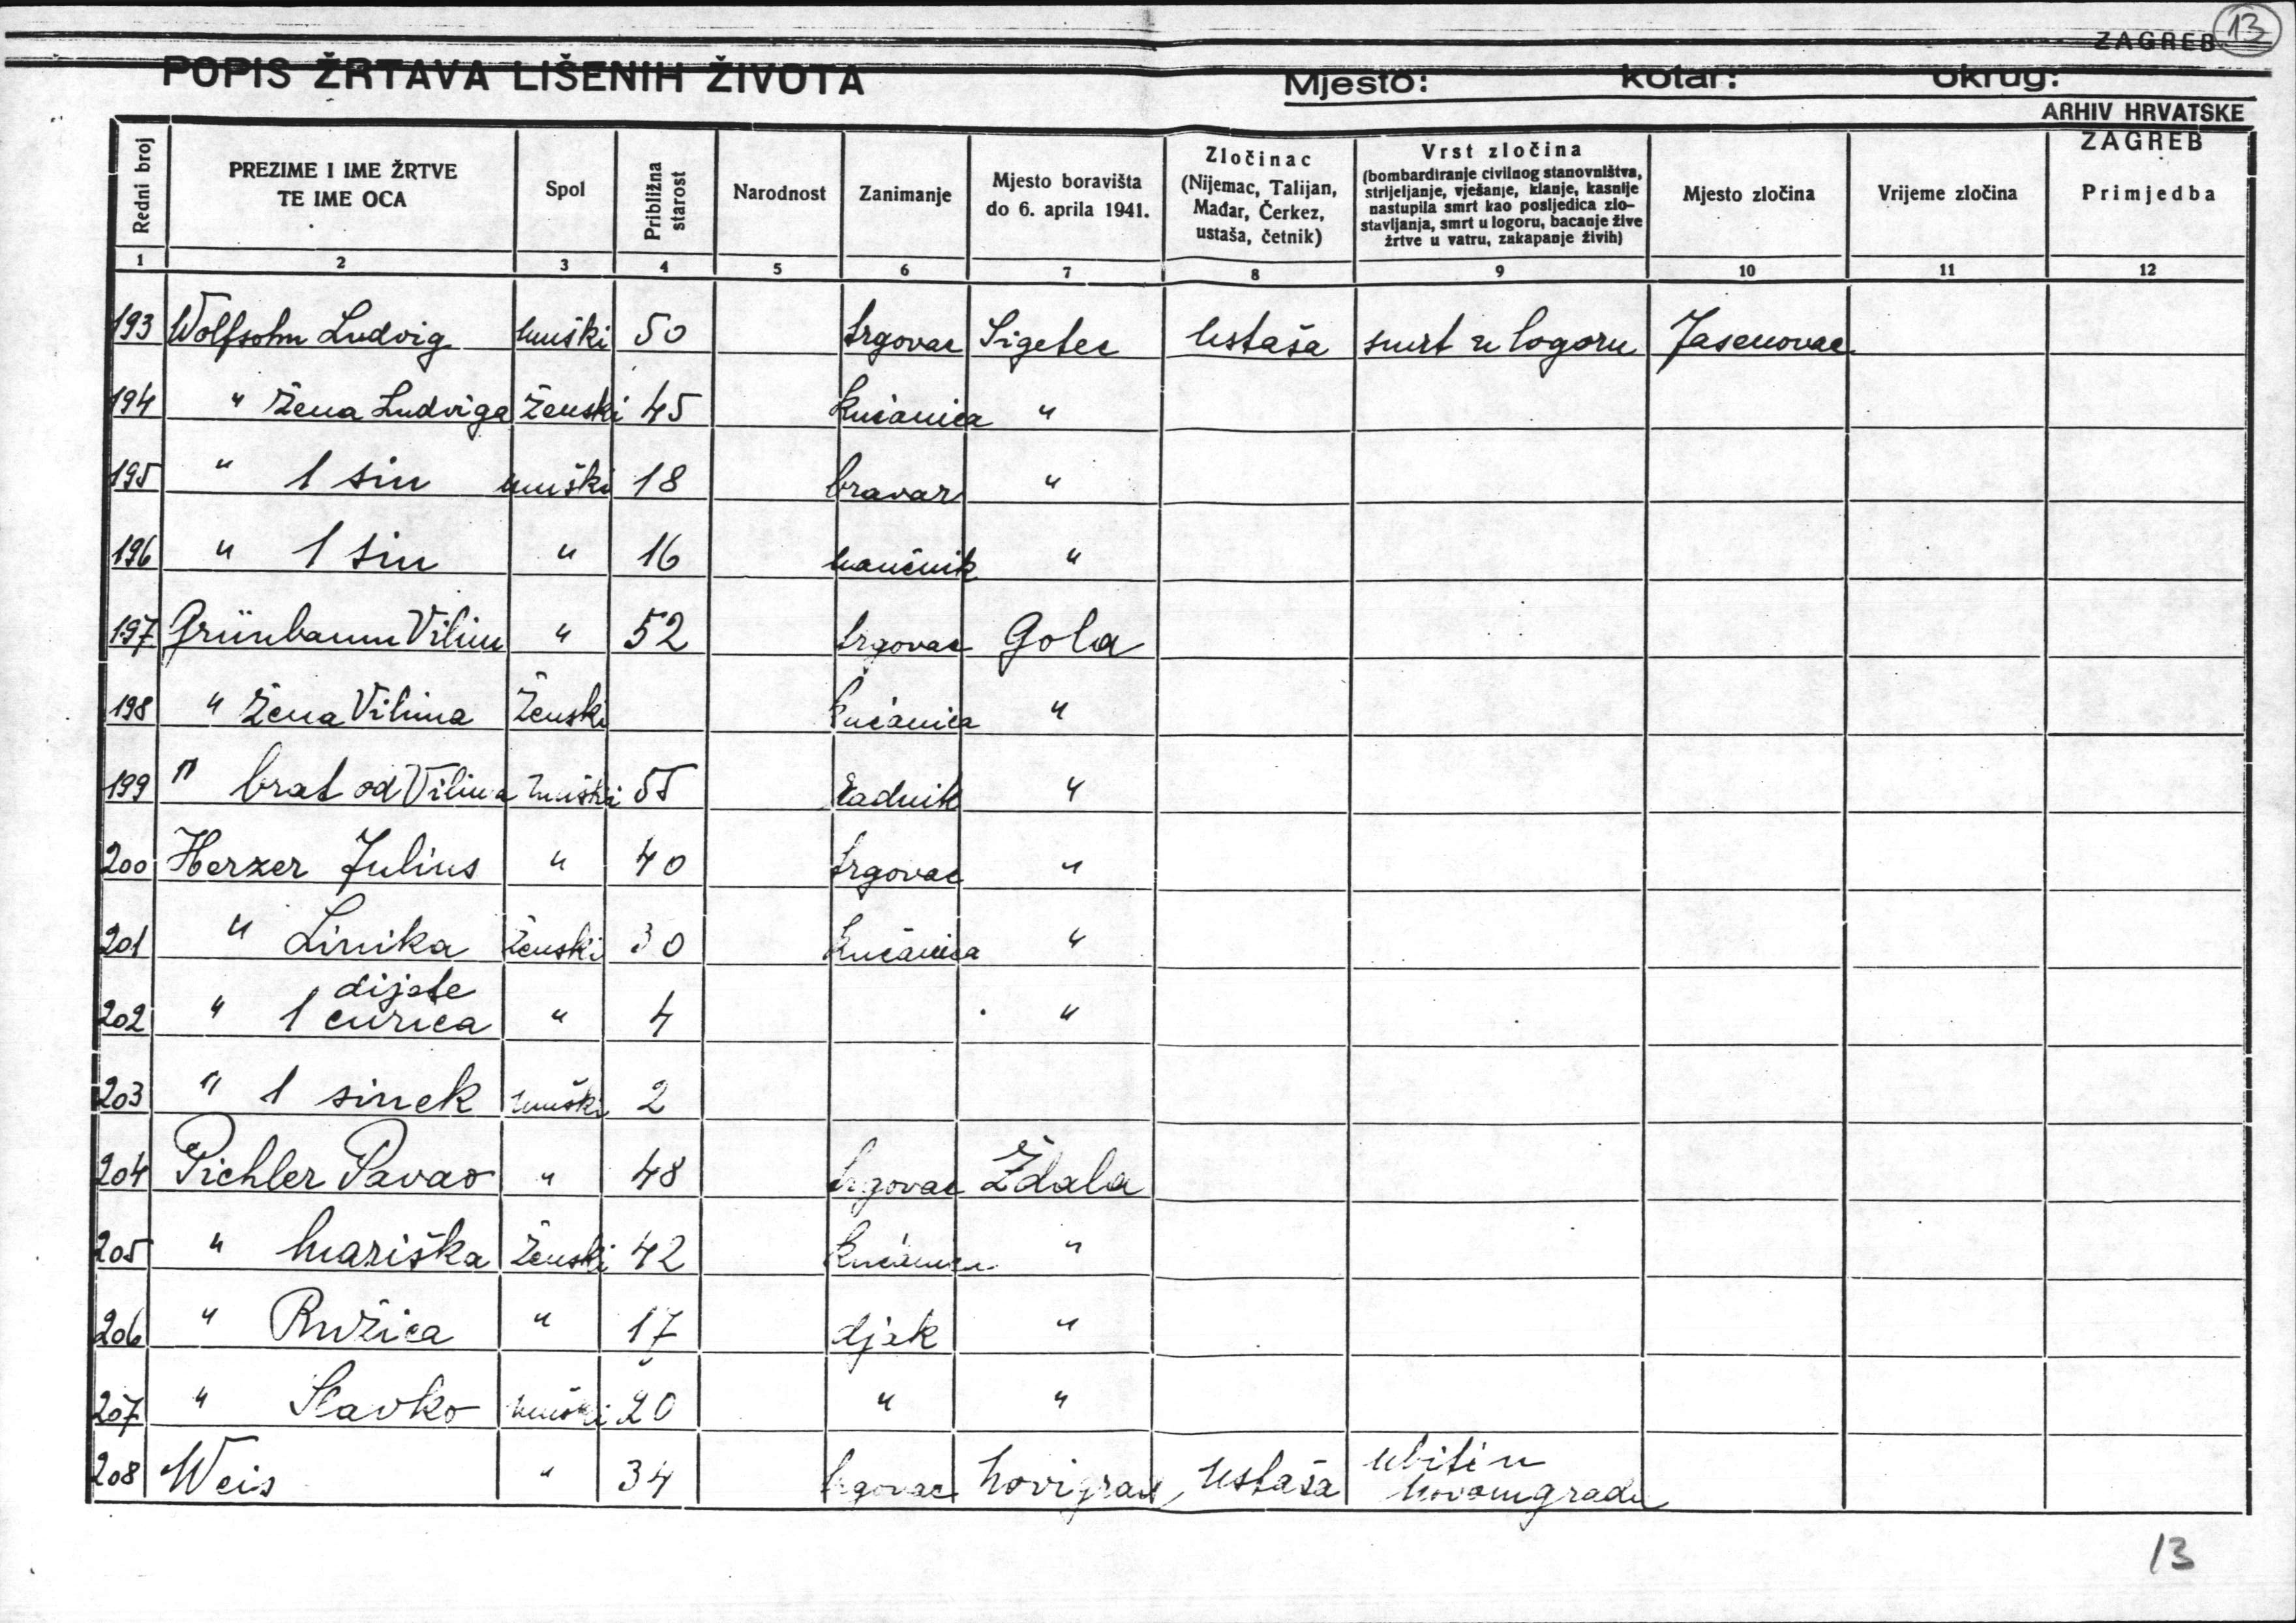 13
ZAGREB
POPIS ŽRTAVA LIŠENIH ŽIVOTA Mjesto: kotar: okrug:
ARHIV HRVATSKE
ZAGREB
Redni broj
PREZIME I IME ŽRTVE
TE IME OCA
Spol
Približna
starost
Narodnost
Zanimanje
Mjesto boravišta
do 6. aprila 1941.
Zločinac
(Nijemac, Talijan,
Mađar, Čerkez,
ustaša, četnik)
Vrst zločina
(bombardiranje civilnog stanovništva,
strijeljanje, vješanje, klanje, kasnije
nastupila smrt kao posljedica zlo-
stavljanja, smrt u logoru, bacanje žive
žrtve u vatru, zakapanje živih)
Mjesto zločina
Vrijeme zločina
Primjedba
1 2 3 4 5 6 7 8 9 10 11 12
193 Wolfsohn Ludvig muški 50 trgovac Sigetec Ustaša smrt u logoru Jasenovac
194 " žena Ludviga ženski 45 kućanica "
195 " 1 sin muški 18 bravar "
196 " 1 sin " 16 naučnik "
197 Grünbaum Vilim " 52 trgovac Gola
198 " žena Vilima ženski kućanica "
199 " brat od Vilima muški 55 radnik "
200 Herzer Julius " 40 trgovac "
201 " Linika ženski 30 kućanica "
202 " 1 dijete curica " 4 "
203 " 1 sinek muški 2
204 Pichler Pavao " 48 trgovac Ždala
205 " Mariška ženski 42 kućanica "
206 " Ružica " 17 djak "
207 " Slavko muški 20 " "
208 Weis " 34 trgovac Novigrad Ustaša ubiti u Novomgradu
13